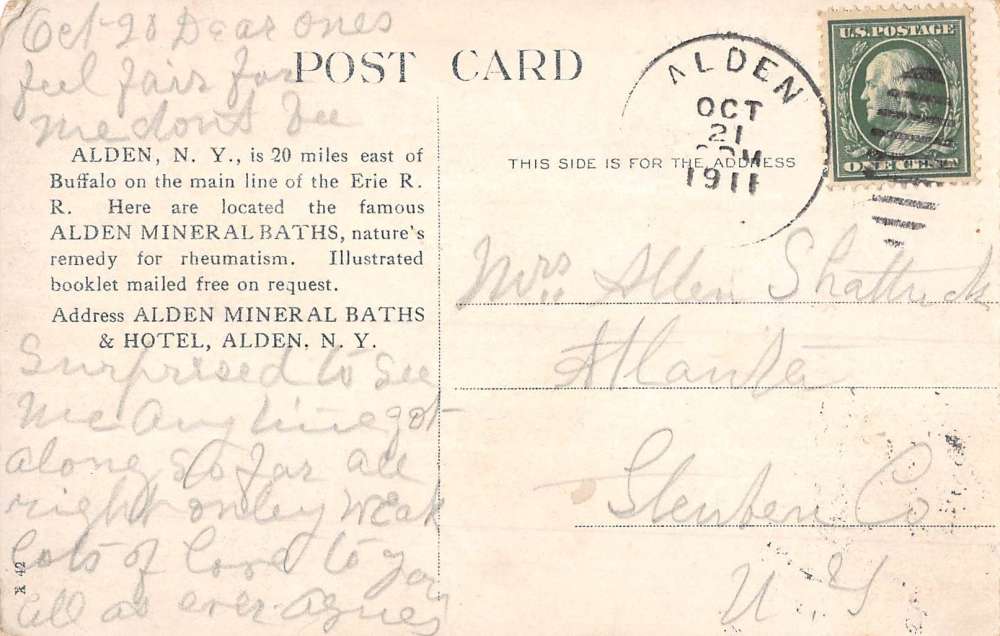 Oct 20 Dear ones
feel fair for
me dont be
POST CARD
ALDEN, N. Y., is 20 miles east of
Buffalo on the main line of the Erie R.
R. Here are located the famous
ALDEN MINERAL BATHS, nature's
remedy for rheumatism. Illustrated
booklet mailed free on request.
Address ALDEN MINERAL BATHS
& HOTEL, ALDEN, N. Y.
Surprised to see
me Any time got
along so far all
right onley weak
Lots of Love to you
all as ever Agnes
A 42
ALDEN
OCT
21
1911
U.S. POSTAGE
ONE CENT
THIS SIDE IS FOR THE ADDRESS
Mrs Allen Shattuck
Atlanta
Steuben Co
N. Y